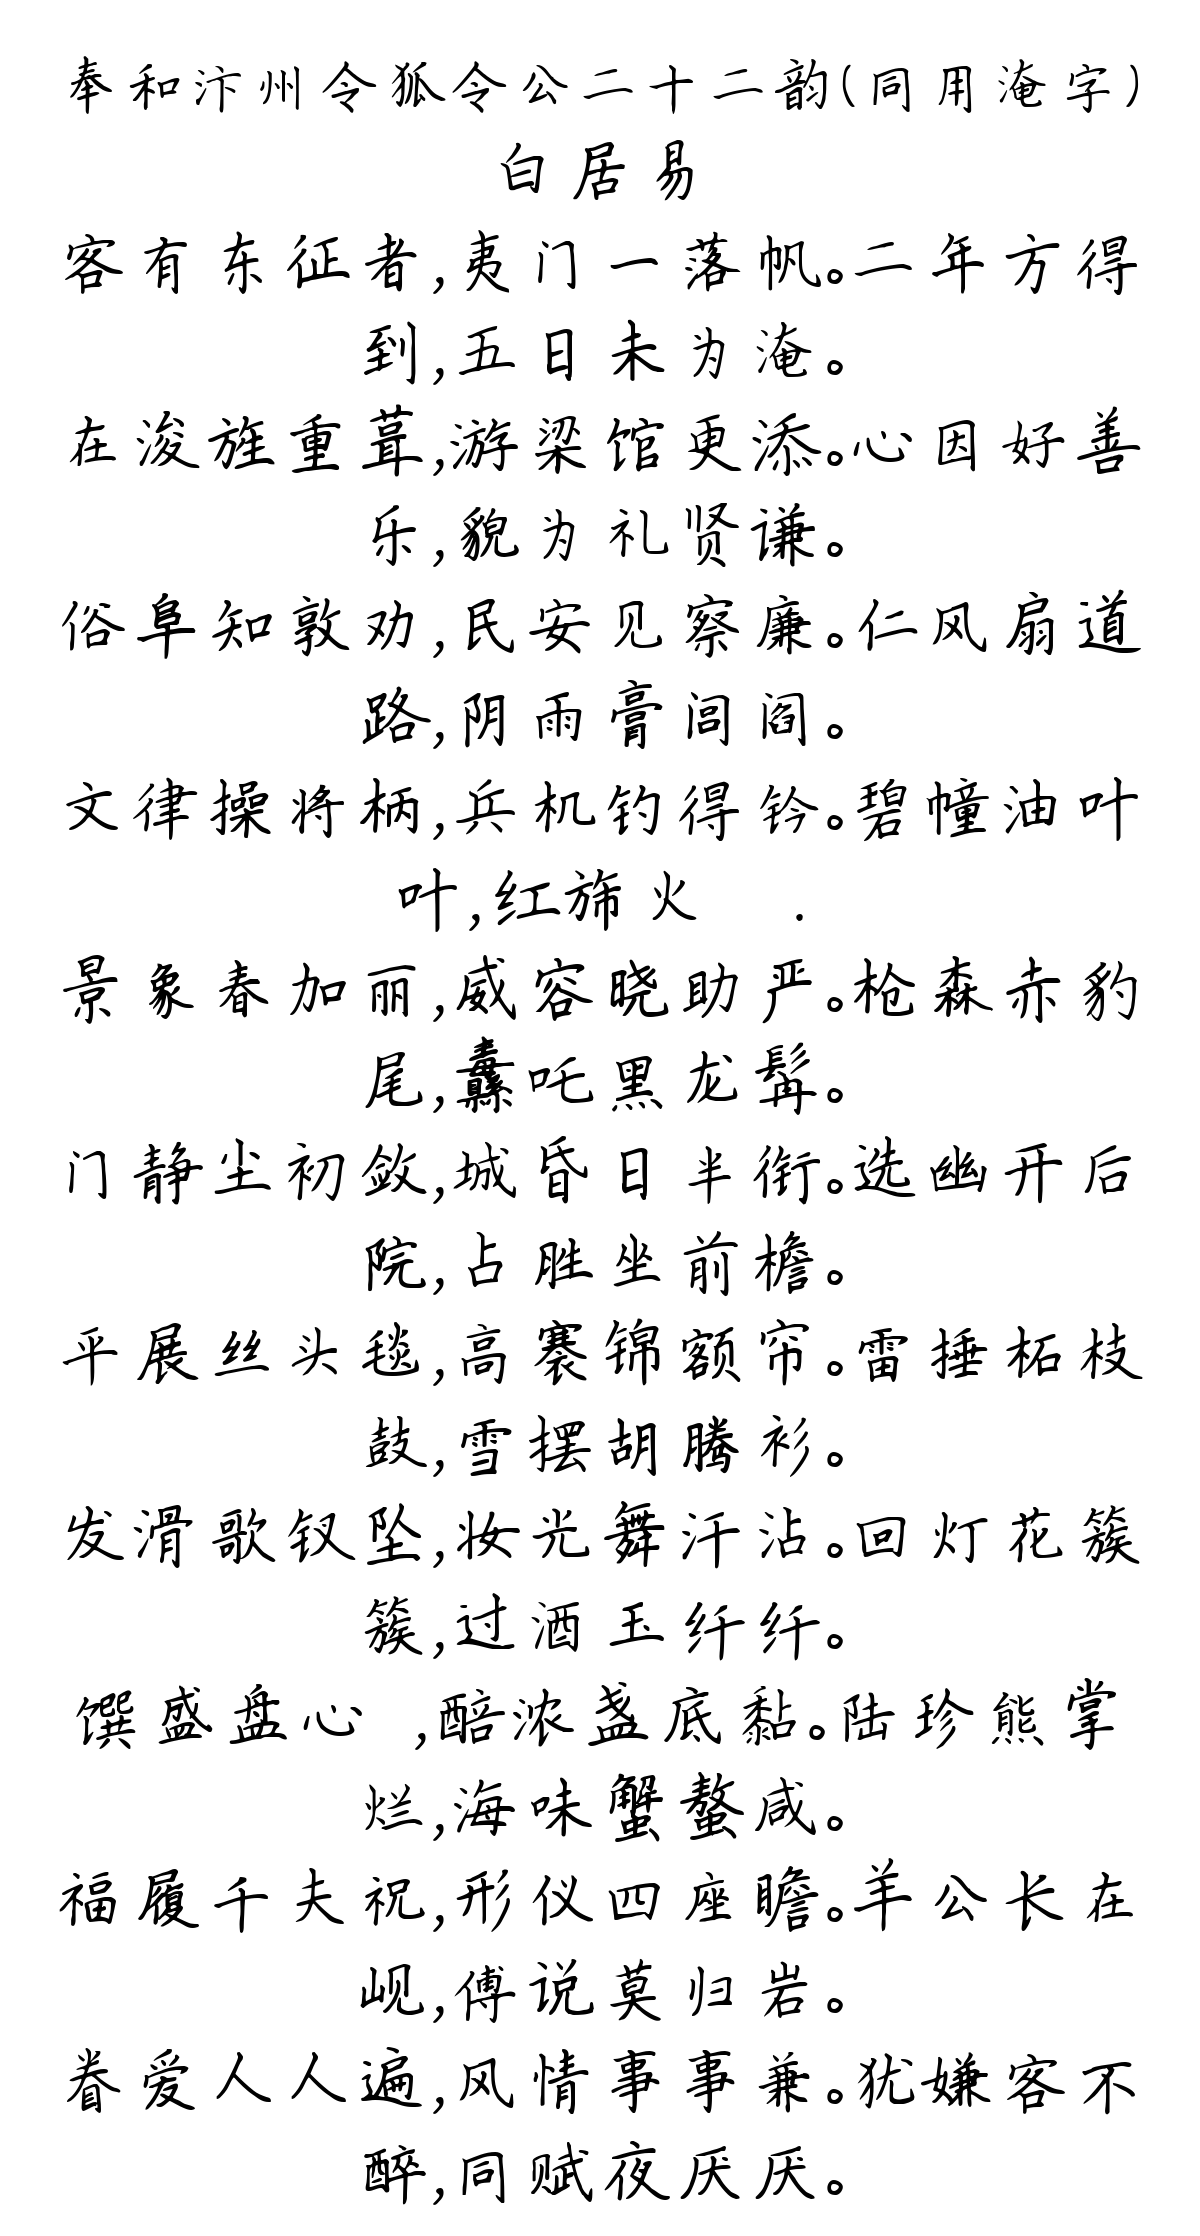 奉和汴州令狐令公二十二韵(同用淹字)
白居易
客有东征者,夷门一落帆。二年方得
到,五日未为淹。
在浚旌重葺,游梁馆更添。心因好善
乐,貌为礼贤谦。
俗阜知敦劝,民安见察廉。仁风扇道
路,阴雨膏闾阎。
文律操将柄,兵机钓得钤。碧幢油叶
叶,红旆火 .
景象春加丽,威容晓助严。枪森赤豹
尾,纛吒黑龙髯。
门静尘初敛,城昏日半衔。选幽开后
院,占胜坐前檐。
平展丝头毯,高褰锦额帘。雷捶柘枝
鼓,雪摆胡腾衫。
发滑歌钗坠,妆光舞汗沾。回灯花簇
簇,过酒玉纤纤。
馔盛盘心 ,醅浓盏底黏。陆珍熊掌
烂,海味蟹螯咸。
福履千夫祝,形仪四座瞻。羊公长在
岘,傅说莫归岩。
眷爱人人遍,风情事事兼。犹嫌客不
醉,同赋夜厌厌。